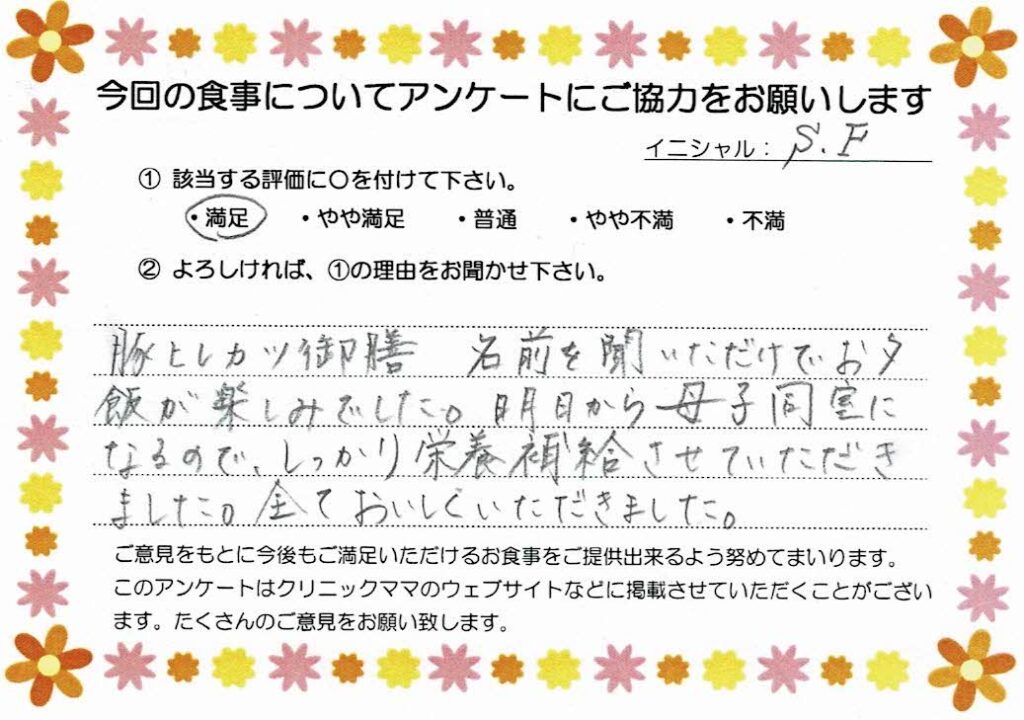 今回の食事についてアンケートにご協力をお願いします
イニシャル： S.F
① 該当する評価に〇を付けて下さい。
・満足 ・やや満足 ・普通 ・やや不満 ・不満
② よろしければ、①の理由をお聞かせ下さい。
豚ヒレカツ御膳 名前を聞いただけでお夕
飯が楽しみでした。明日から母子同室に
なるので、しっかり栄養補給させていただき
ました。全ておいしくいただきました。
ご意見をもとに今後もご満足いただけるお食事をご提供出来るよう努めてまいります。
このアンケートはクリニックママのウェブサイトなどに掲載させていただくことがござい
ます。たくさんのご意見をお願い致します。